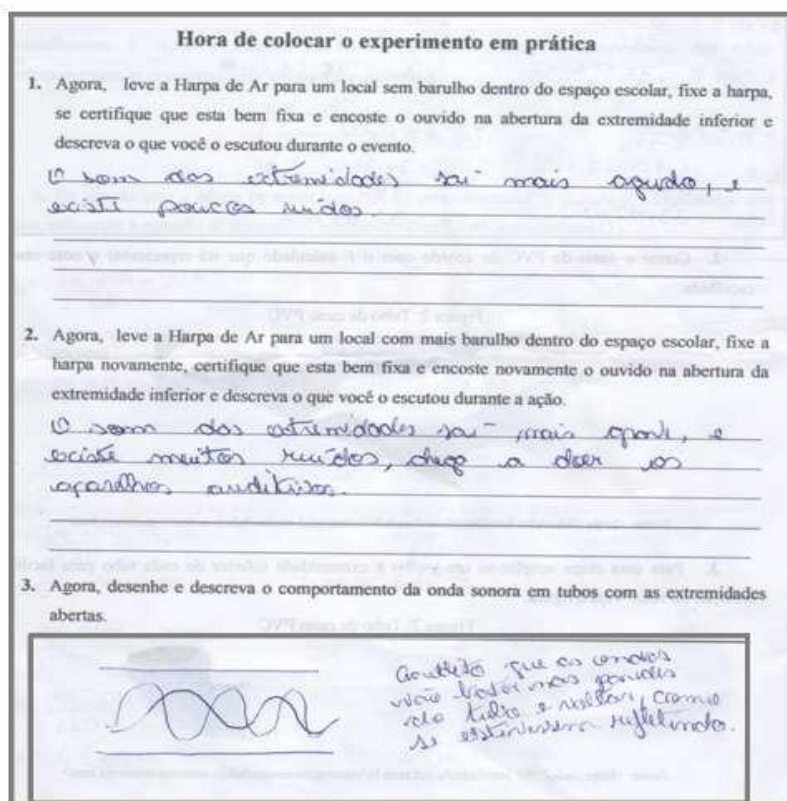 Hora de colocar o experimento em prática
1. Agora, leve a Harpa de Ar para um local sem barulho dentro do espaço escolar, fixe a harpa,
se certifique que esta bem fixa e encoste o ouvido na abertura da extremidade inferior e
descreva o que você o escutou durante o evento.
O som das extremidades sai mais agudo, e
existe poucos ruídos.
2. Agora, leve a Harpa de Ar para um local com mais barulho dentro do espaço escolar, fixe a
harpa novamente, certifique que esta bem fixa e encoste novamente o ouvido na abertura da
extremidade inferior e descreva o que você o escutou durante a ação.
O som das extremidades sai mais grave, e
existe muitos ruídos, chega a doer os
aparelhos auditivos.
3. Agora, desenhe e descreva o comportamento da onda sonora em tubos com as extremidades
abertas.
Acredito que as ondas
vão bater nas paredes
do tubo e voltar, como
se estivessem refletindo.